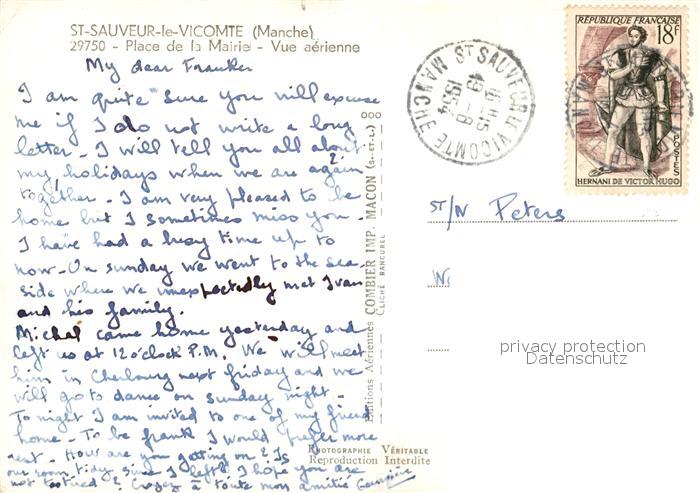 ST-SAUVEUR-le-VICOMTE (Manche)
29750 - Place de la Mairie - Vue aérienne
My dear
I am quite sure you will excuse
me if I do not write a long
letter - I will tell you all about
my holidays when we are again
together - I am very pleased to be
home but I sometimes miss you -
I have had a busy time up to
now - On sunday we went to the sea-
side where we unexpectedly met Ivan
and his family.
Michel came home yesterday and
left us at 12 o'clock P.M. We will meet
him in Cherbourg next friday and we
will go to dance on sunday night -
To night I am invited to one of my friend
home - To be frank I would prefer more
rest - How are you getting on? Is
our room tidy since I left? I hope you are
not too tired? Croyez à toute mon amitié
Editions Aériennes COMBIER IMP. MACON (S.-ET-L.)
CLICHÉ RANCUREL
PHOTOGRAPHIE VÉRITABLE
Reproduction Interdite
ST SAUVEUR LE VICOMTE
16 H 15
19 - 8
1954
MANCHE
REPUBLIQUE FRANÇAISE
18F
POSTES
HERNANI DE VICTOR HUGO
ST/N Peters
privacy protection
Datenschutz